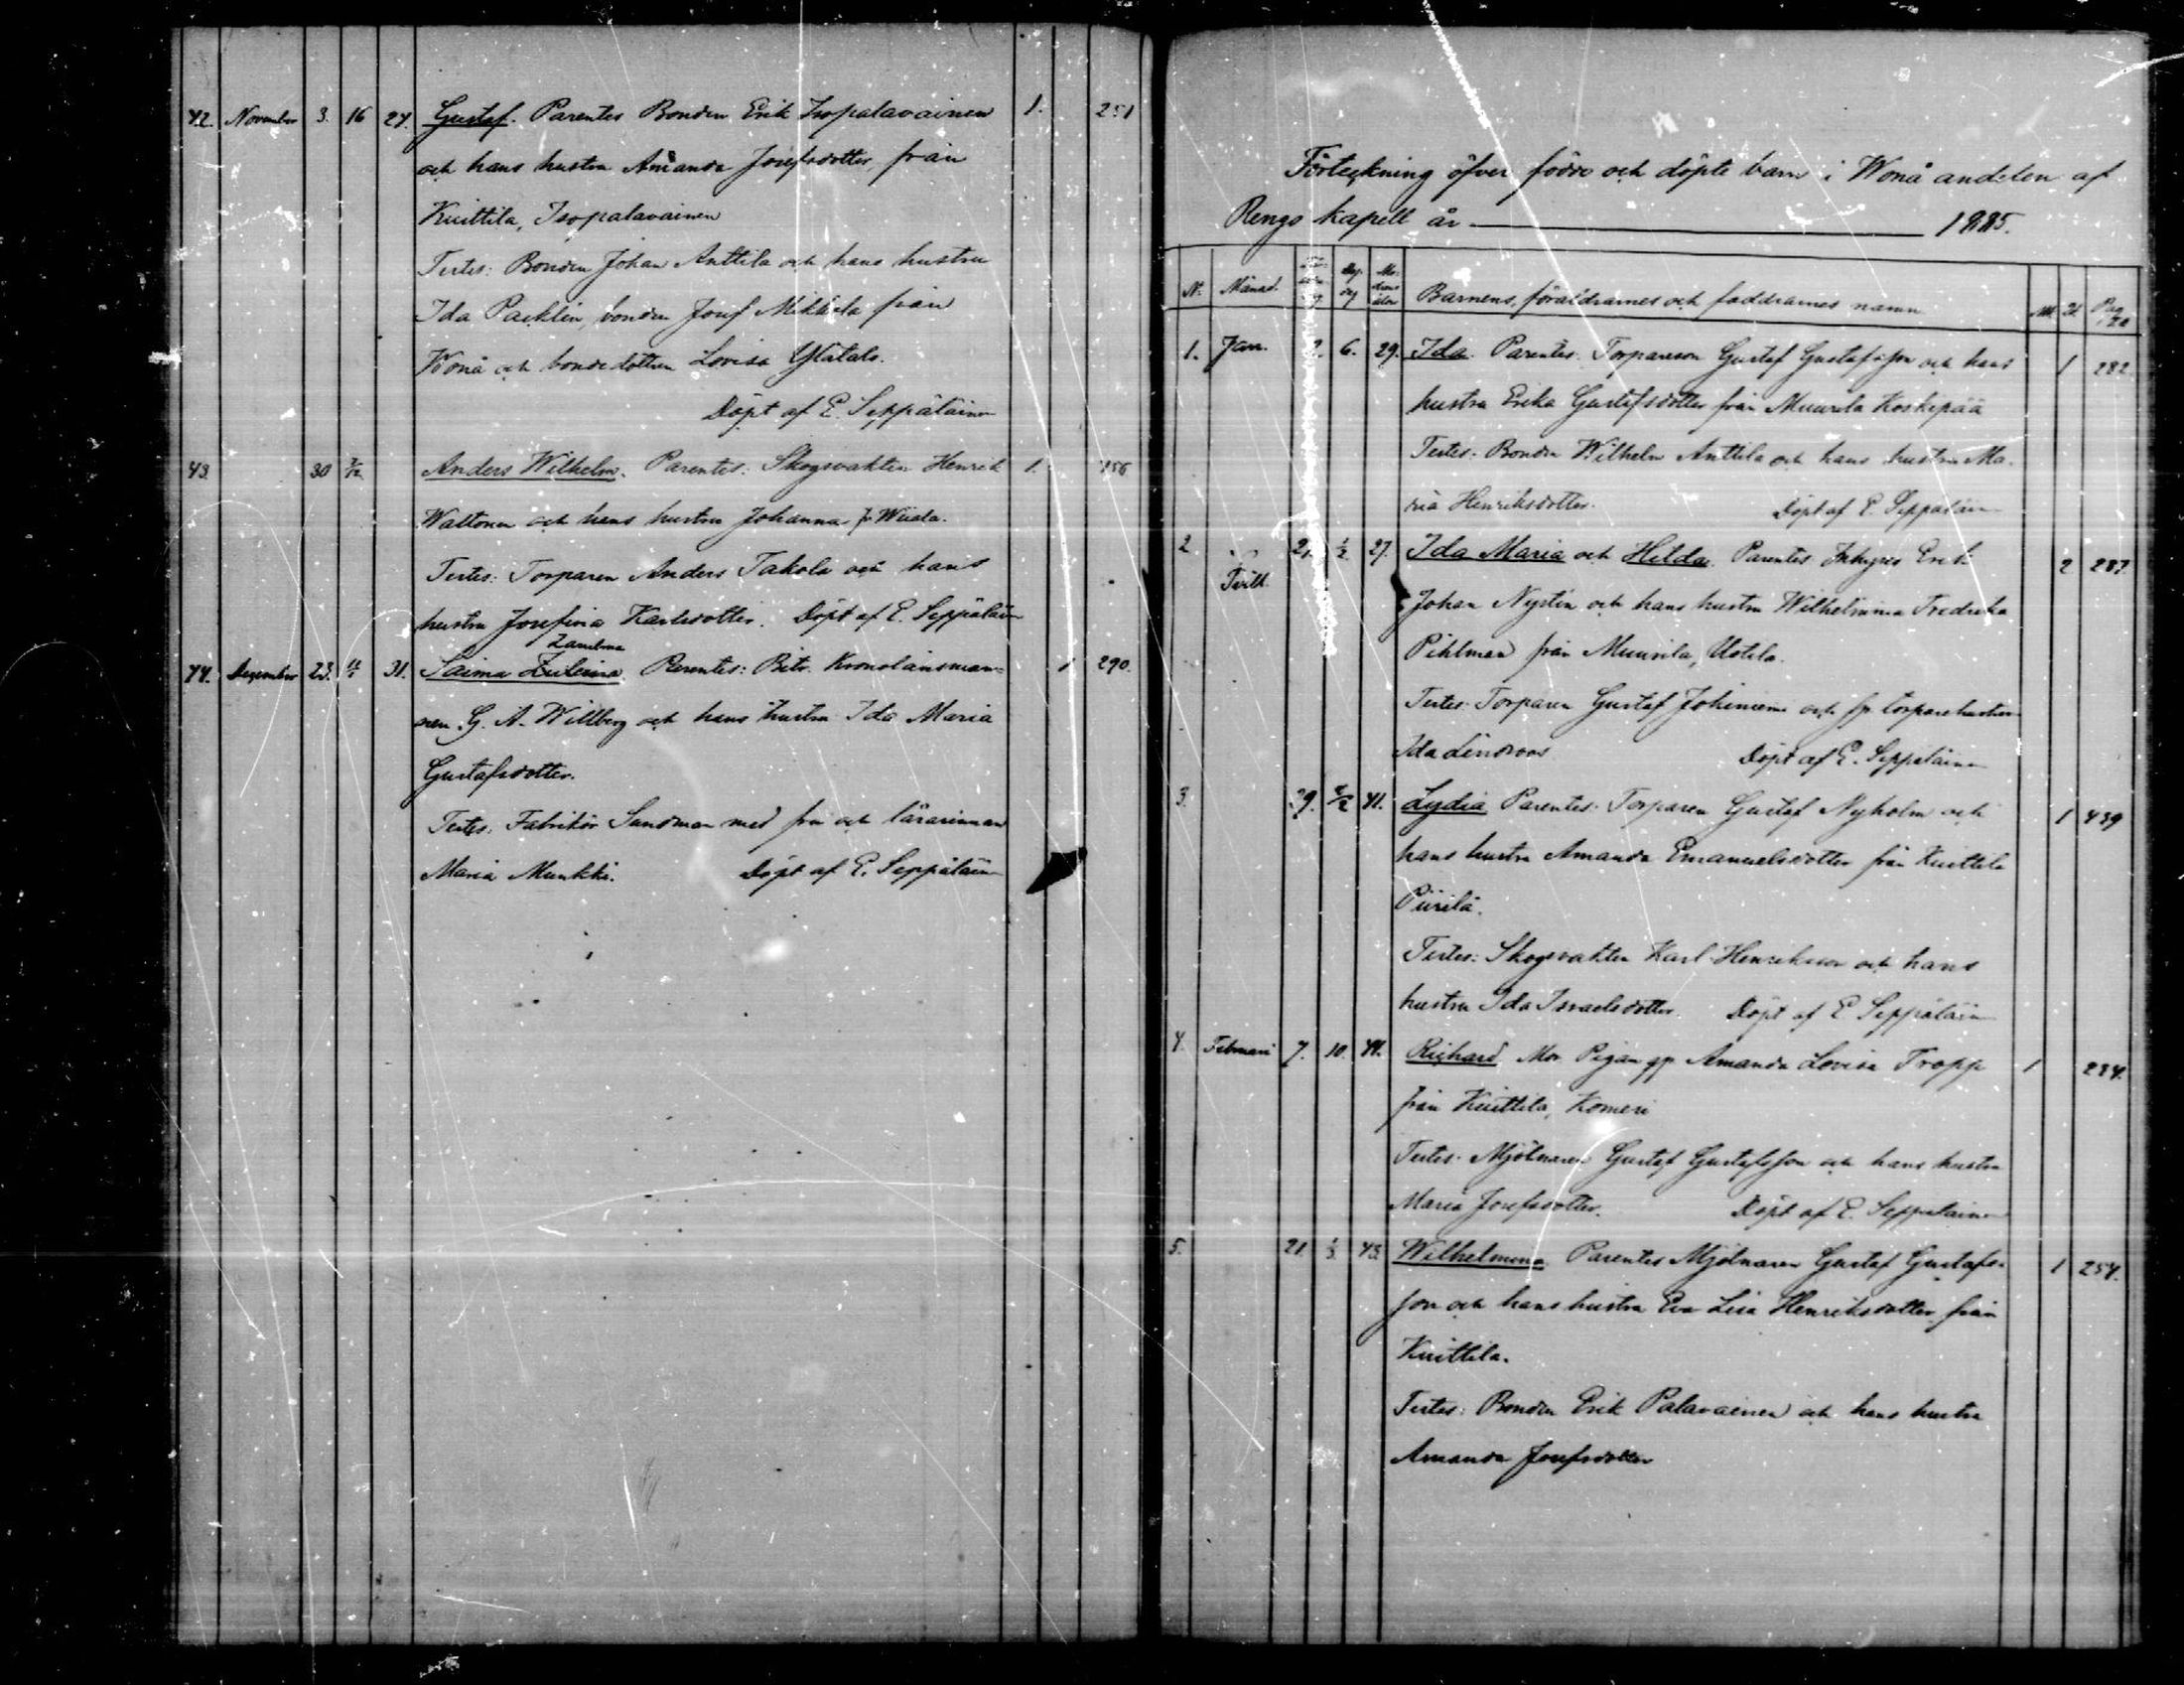 42. November 3. 16 27. Gustaf. Parentes Bonden Erik Isopalavainen 1. 251
och hans hustru Amanda Josefsdotter från
Kuittila, Isopalavainen
Testes: Bonden Johan Anttila och hans hustru
Ida Packlén, bonden Josef Mikkola från
Wånå och bondedottren Lovisa Ylätalo.
Döpt af E. Seppäläinen
43. 30 7/12 Anders Wilhelm. Parentes: Skogsvakten Henrik 1. 256
Waltonen och hans hustru Johanna fr Wiiala.
Testes: Torparen Anders Takola och hans
hustru Josefina Karlsdotter. Döpt af E. Seppäläin
44. December 23. 11/1 31. Saima Parentes: Bitr. Kronolänsman- 1 290.
nen G. A. Willberg och hans hustru Ida Maria
Gustafsdotter.
Testes: Fabrikör Sandman med fru och lärarinnan
Maria Munkki. Döpt af E. Seppäläin
Förteckning öfver födde och döpte barn i Wånå andelen af
Rengo kapell år 1885.
N. Månad. Födelsedag Dop dag Modrens ålder Barnens, föräldrarnes och faddrarnes namn M. Q. Pag
1. Jan. 2. 6. 29. Ida. Parentes: Torpareson Gustaf Gustafsson och hans 1 282
hustru Erika Gustafsdotter från Muurila Koskipää
Testes: Bonden Wilhelm Anttila och hans hustru Ma-
ria Henriksdotter. Döpt af E. Seppäläin
2 Tvill. 21. 1/2 27. Ida Maria och Hilda. Parentes Inhyses Erik 2 287
Johan Nystén och hans hustru Wilhelmina Fredrika
Pihlman från Muurila, Uotila.
Testes: Torparen Gustaf Johinen och torparehustrun
Ida Lindroos Döpt af E. Seppäläinen
3. 29. 41. Lydia Parentes: Torparen Gustaf Nyholm och 1 439
hans hustru Amanda Emanuelsdotter från Kuittila
Piirilä.
Testes: Skogvakten Karl Henriksson och hans
hustru Ida Israelsdotter. Döpt af E Seppäläin
4. Februari 7. 10. 44. Richard Mor. Pigan Amanda Lovisa Tropp 1 284.
från Kuittila, Komeri
Testes: Mjölnaren Gustaf Gustafsson och hans hustru
Maria Josefsdotter. Döpt af E. Seppäläinen
5. 21. 1/3. 43. Wilhelmina Parentes Mjölnaren Gustaf Gustafs- 1 254.
son och hans hustru Eva Lisa Henriksdotter från
Kuittila.
Testes: Bonden Erik Palavainen och hans hustru
Amanda Josefsdotter